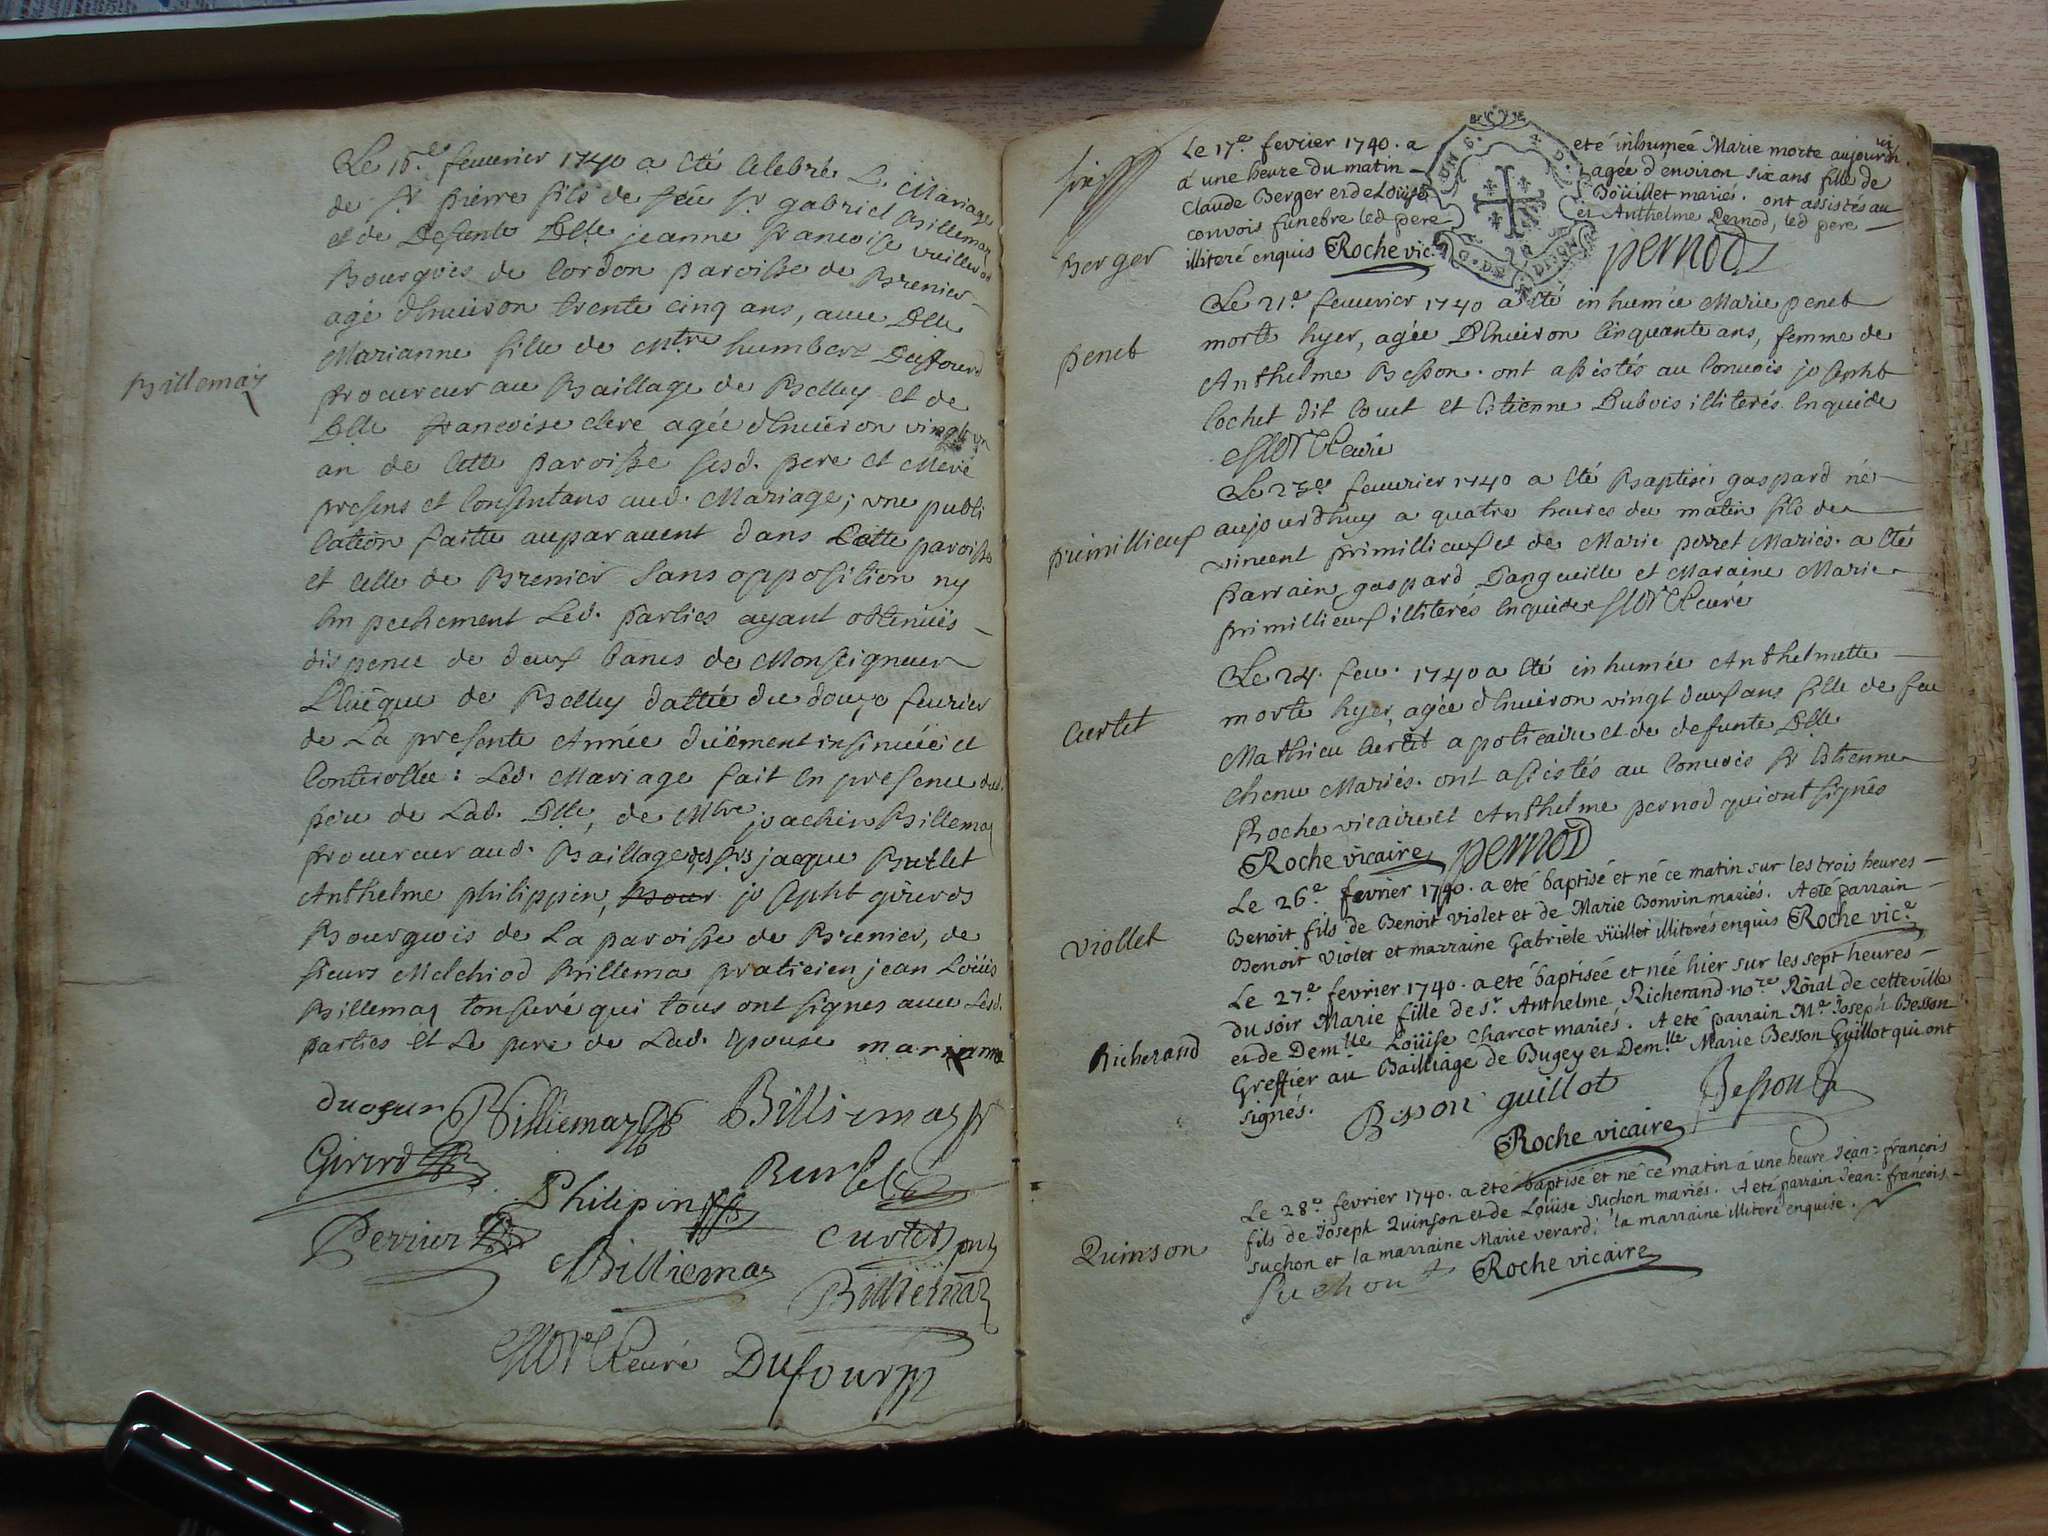 Billemaz
Le 16.e feuurier 1740 a eté celebré Le Mariage
de Sr pierre fils de feu Sr gabriel Billemaz
et de Defunte Dlle jeanne francoise vuillerod
Bourgois de Cordon paroisse de Brenier
agé d'enuiron trente cinq ans, auec Dlle
Marianne fille de Mtre humbert Dufour
procureur au Baillage de Belley et de
Dlle francoise clerc agée d'enuiron vingt un
an de Cette paroisse sesd. pere et Mere
presens et Consentans aud. Mariage; vne publi
cation faitte auparauent dans Cette paroisse
et celle de Brenier sans opposition ny
Enpechement Led. parties ayant obtenües
dispence de deux bancs de Monseigneur
L'Eueque de Belley dattée du douze feurier
de La presente Année düement insinuée et
Controllée: Led. Mariage fait En presence dud.
pere de Lad. Dlle, de Mtre joachin Billemaz
procureur aud. Baillage, des srs jacque Burlet
Anthelme philippin, josepht girerd
Bourgois de La paroisse de Brenier, de
sieurs Melchiod Billemaz praticien jean Loüis
Billemaz tonsuré qui tous ont signes auec Lesd.
parties et Le pere de Lad. Epouse marianne
dufour Billiemaz Billiemaz
Girerd Burlet
Philipin
Perrier Curtet
Billiemaz
Billiemaz
Curé Dufour
Berger
Le 17.e fevrier 1740. a eté inhumée Marie morte aujourd'hui
á une heure du matin agée d'environ six ans fille de
Claude Berger et de Loüise Boüillet mariés. ont assistés au
convois funebre led pere et Anthelme Pernod, led pere
illiteré enquis Roche vic.e pernod
penet
Le 21.e feuurier 1740 a eté inhumée Marie penet
morte hyer, agée D'enuiron Cinquante ans, femme de
Anthelme Besson. ont assistés au Conuois josepht
Cochet dit Couet et Etienne Dubois illiterés Enquide
Curé
primillieux
Le 23.e feuurier 1740 a eté Baptisé gaspard né
aujourdhuy a quatre heures du matin fils de
vincent primillieux et de Marie perret Mariés. a eté
parrain gaspard Dangueille et Maraine Marie
primillieux illiterés Enquides Curé
Curtet
Le 24. feu. 1740 a eté inhumée Anthelmette
morte hyer, agée d'enuiron vingt deux ans fille de feu
Mathieu Curtet apoticaire et de defunte Dlle
Chenu Mariés. ont assistés au Conuois Sr Etienne
Roche vicaire et Anthelme pernod qui ont signés
Roche vicaire pernod
Viollet
Le 26.e fevrier 1740. a eté baptisé et né ce matin sur les trois heures
Benoit fils de Benoit Violet et de Marie Bonvin mariés. A eté parrain
Benoit Violet et marraine Gabriele vüillet illiterés enquis Roche vic.e
Richerand
Le 27.e fevrier 1740. a eté baptisée et née hier sur les sept heures
du soir Marie fille de sr. Anthelme Richerand nore Roial de cette ville
et de Demlle Loüise Charcot mariés. A eté parrain Me Joseph Besson
Greffier au Bailliage de Bugey et Demlle Marie Besson Guillot qui ont
signés.
Besson guillot Besson
Roche vicaire
Quinson
Le 28.e fevrier 1740. a eté baptisé et né ce matin á une heure Jean=françois
fils de Joseph Quinson et de Loüise suchon mariés. A eté parrain Jean=françois
suchon et la marraine Marie verard; la marraine illiteré enquise.
Suchon Roche vicaire